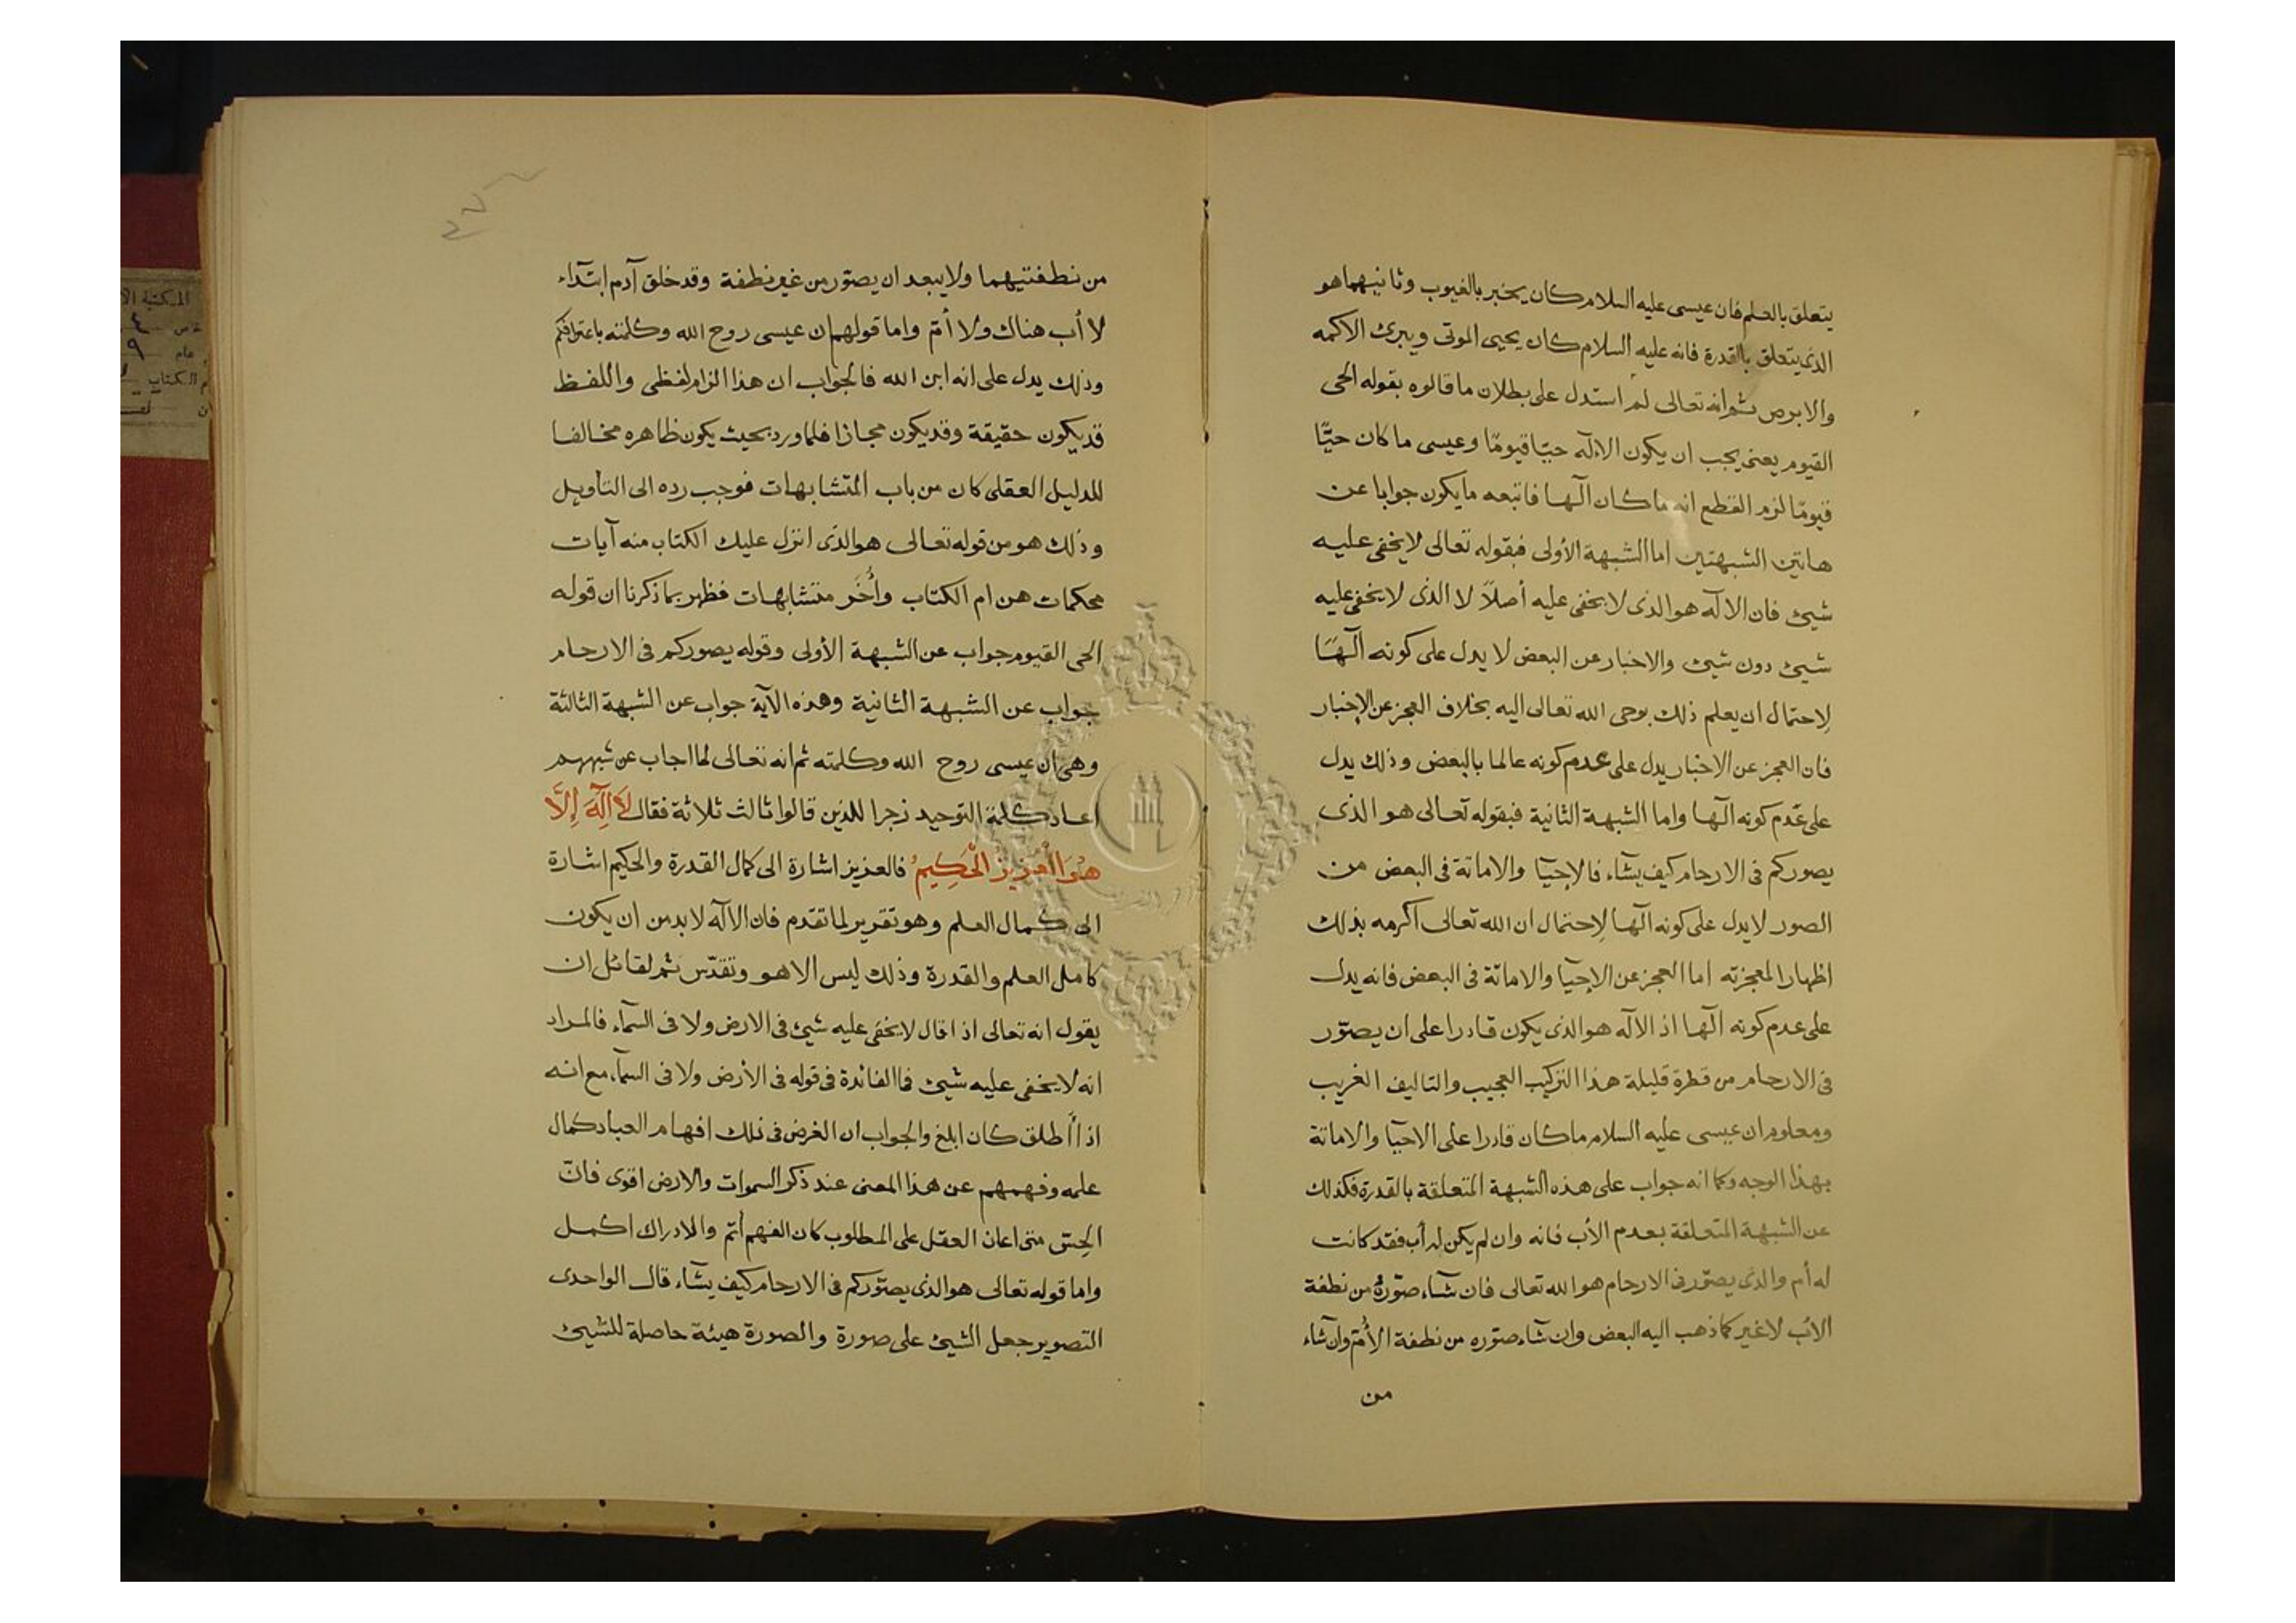 يتعلق بالعلم فان عيسى عليه السلام كان يخبر بالغيوب وثانيهما هو
الذى يتعلق بالقدرة فانه عليه السلام كان يحيى الموتى ويبرئ الاكمه
والابرص ثم انه تعالى لم استدل على بطلان ما قالوه بقوله الحى
القيوم يعنى يجب ان يكون الاله حيّا قيومًا وعيسى ما كان حيًّا
قيومًا لزم القطع انه ما كان آلها فاتبعه ما يكون جوابا عن
هاتين الشبهتين اما الشبهة الأولى فبقوله تعالى لا يخفى عليه
شيئ فان الاله هو الذى لا يخفى عليه أصلاً لا الذى لا يخفى عليه
شيئ دون شيئ والاخبار عن البعض لا يدل على كونه آلهًا
لإحتمال ان يعلم ذلك بوحى الله تعالى اليه بخلاف العجز عن الإخبار
فان العجز عن الاخبار يدل على عدم كونه عالما بالبعض وذلك يدل
على عدم كونه آلها واما الشبهة الثانية فبقوله تعالى هو الذى
يصوركم فى الارحام كيف يشآء فالإحيآ والاماتة فى البعض من
الصور لا يدل على كونه آلها لإحتمال ان الله تعالى اكرمه بذلك
اظهارا لمعجزته اما العجز عن الاحيآ والاماتة فى البعض فانه يدل
على عدم كونه آلها اذ الاله هو الذى يكون قادرا على ان يصوّر
فى الارحام من قطرة قليلة هذا التركيب العجيب والتاليف الغريب
ومعلوم ان عيسى عليه السلام ما كان قادرا على الاحيآ والاماتة
بهذا الوجه وكما انه جواب على هذه الشبهة المتعلقة بالقدرة فكذلك
عن الشبهة المتعلقة بعدم الأب فانه وان لم يكن له أب فقد كانت
له أم والذى يصوّر فى الارحام هو الله تعالى فان شآء صوّره من نطفة
الأب لا غير كما ذهب اليه البعض وان شآء صوّره من نطفة الأمّ وان شآء
من
من نطفتيهما ولا يبعد ان يصوّر من غير نطفة وقد خلق آدم ابتدآء
لا أب هناك ولا أمّ واما قولهم ان عيسى روح الله وكلمته باعترافكم
وذلك يدل على انه ابن الله فالجواب ان هذا الزام لفظى واللفظ
قد يكون حقيقة وقد يكون مجازا فلما ورد بحيث يكون ظاهره مخالفا
للدليل العقلى كان من باب المتشابهات فوجب رده الى التأويل
وذلك هو من قوله تعالى هو الذى انزل عليك الكتاب منه آيات
محكمات هن ام الكتاب وأُخَر متشابهات فظهر بما ذكرنا ان قوله
الحى القيوم جواب عن الشبهة الأولى وقوله يصوركم فى الارحام
جواب عن الشبهة الثانية وهذه الآية جواب عن الشبهة الثالثة
وهى ان عيسى روح الله وكلمته ثم انه تعالى لما اجاب عن شبههم
اعاد كلمة التوحيد زجرا للذين قالوا ثالث ثلاثة فقال لَا اِلَهَ إِلَّا
هُوَ الْعَزِيزُ الْحَكِيمُ فالعزيز اشارة الى كمال القدرة والحكيم اشارة
الى كمال العلم وهو تقرير لما تقدم فان الاله لا بد من ان يكون
كامل العلم والقدرة وذلك ليس الا هو وتقدّس ثم لقائل ان
يقول انه تعالى اذا قال لا يخفى عليه شيئ فى الارض ولا فى السمآء فالمراد
انه لا يخفى عليه شيئ فما الفائدة فى قوله فى الأرض ولا فى السمآء مع انه
اذا أطلق كان ابلغ والجواب ان الغرض فى ذلك افهام العباد كمال
علمه وفهمهم عن هذا المعنى عند ذكر السموات والارض اقوى فانّ
الحِسّ متى اعان العقل على المطلوب كان الفهم أتم والادراك اكمل
واما قوله تعالى هو الذى يصوّركم فى الارحام كيف يشآء قال الواحدى
التصوير جعل الشيئ على صورة والصورة هيئة حاصلة للشيئ